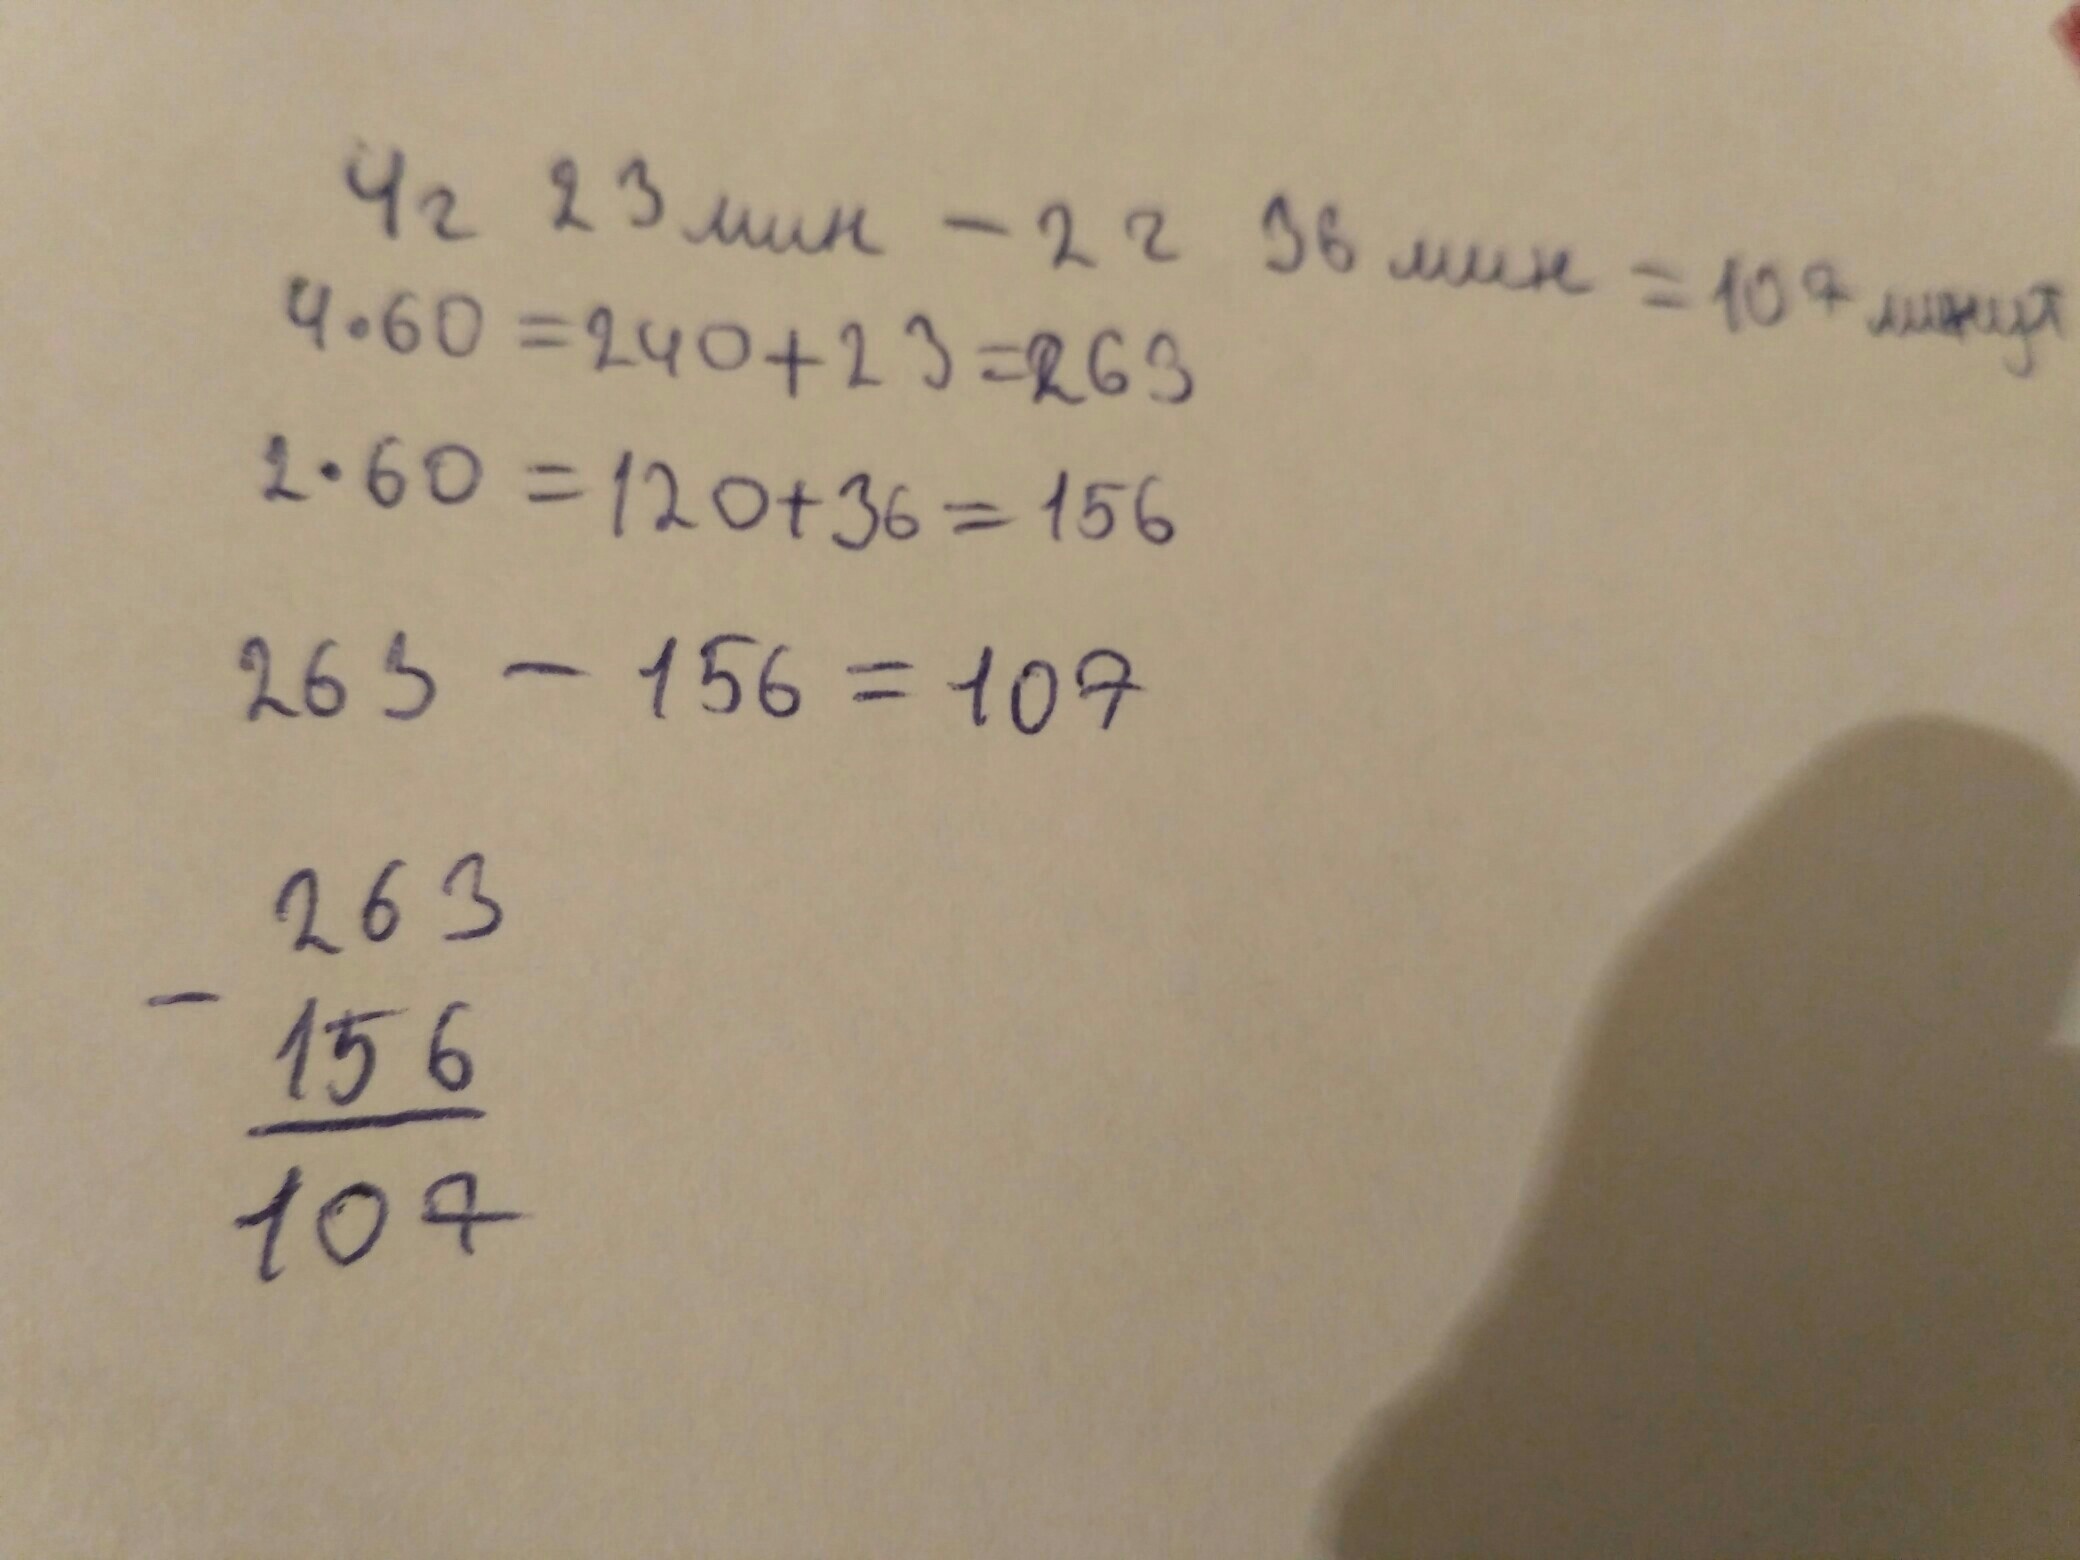 4г 23 мин - 2г 36 мин = 107 минут
4·60 = 240 + 23 = 263
2·60 = 120 + 36 = 156
263 - 156 = 107
263
-
156
107